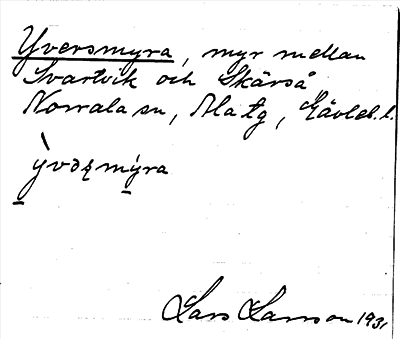 Yversmyra, myr mellan
Svartvik och Skärså
Norrala sn, Ala tg, Gävleb. l.
ỳvəʂmýra
Lars Larsson 1931